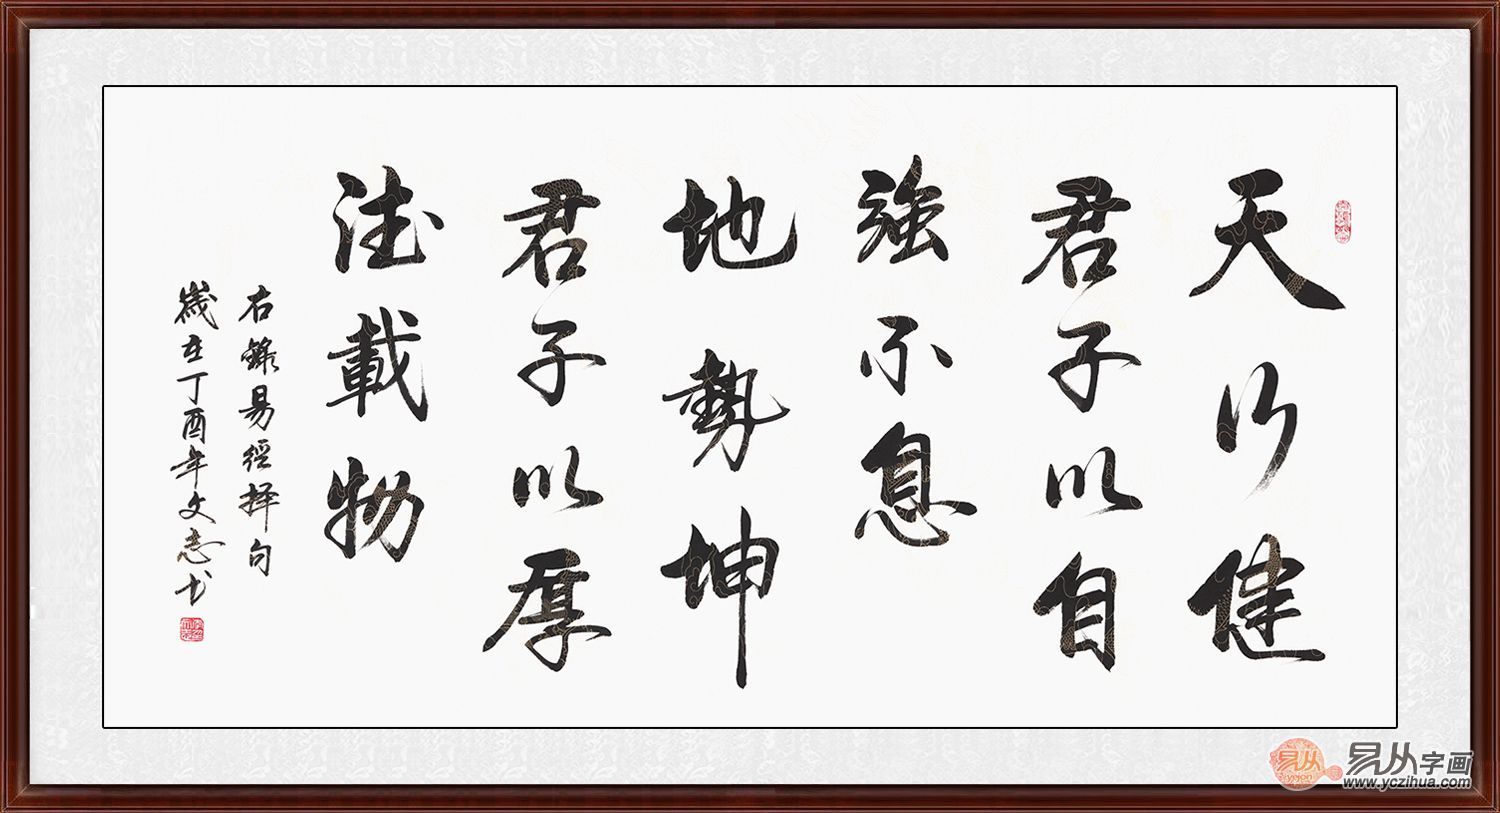 天行健
君子以自
強不息
地勢坤
君子以厚
德載物
右錄易經擇句
歲在丁酉年文志书
易从
yicon
易从字画
www.yczihua.com